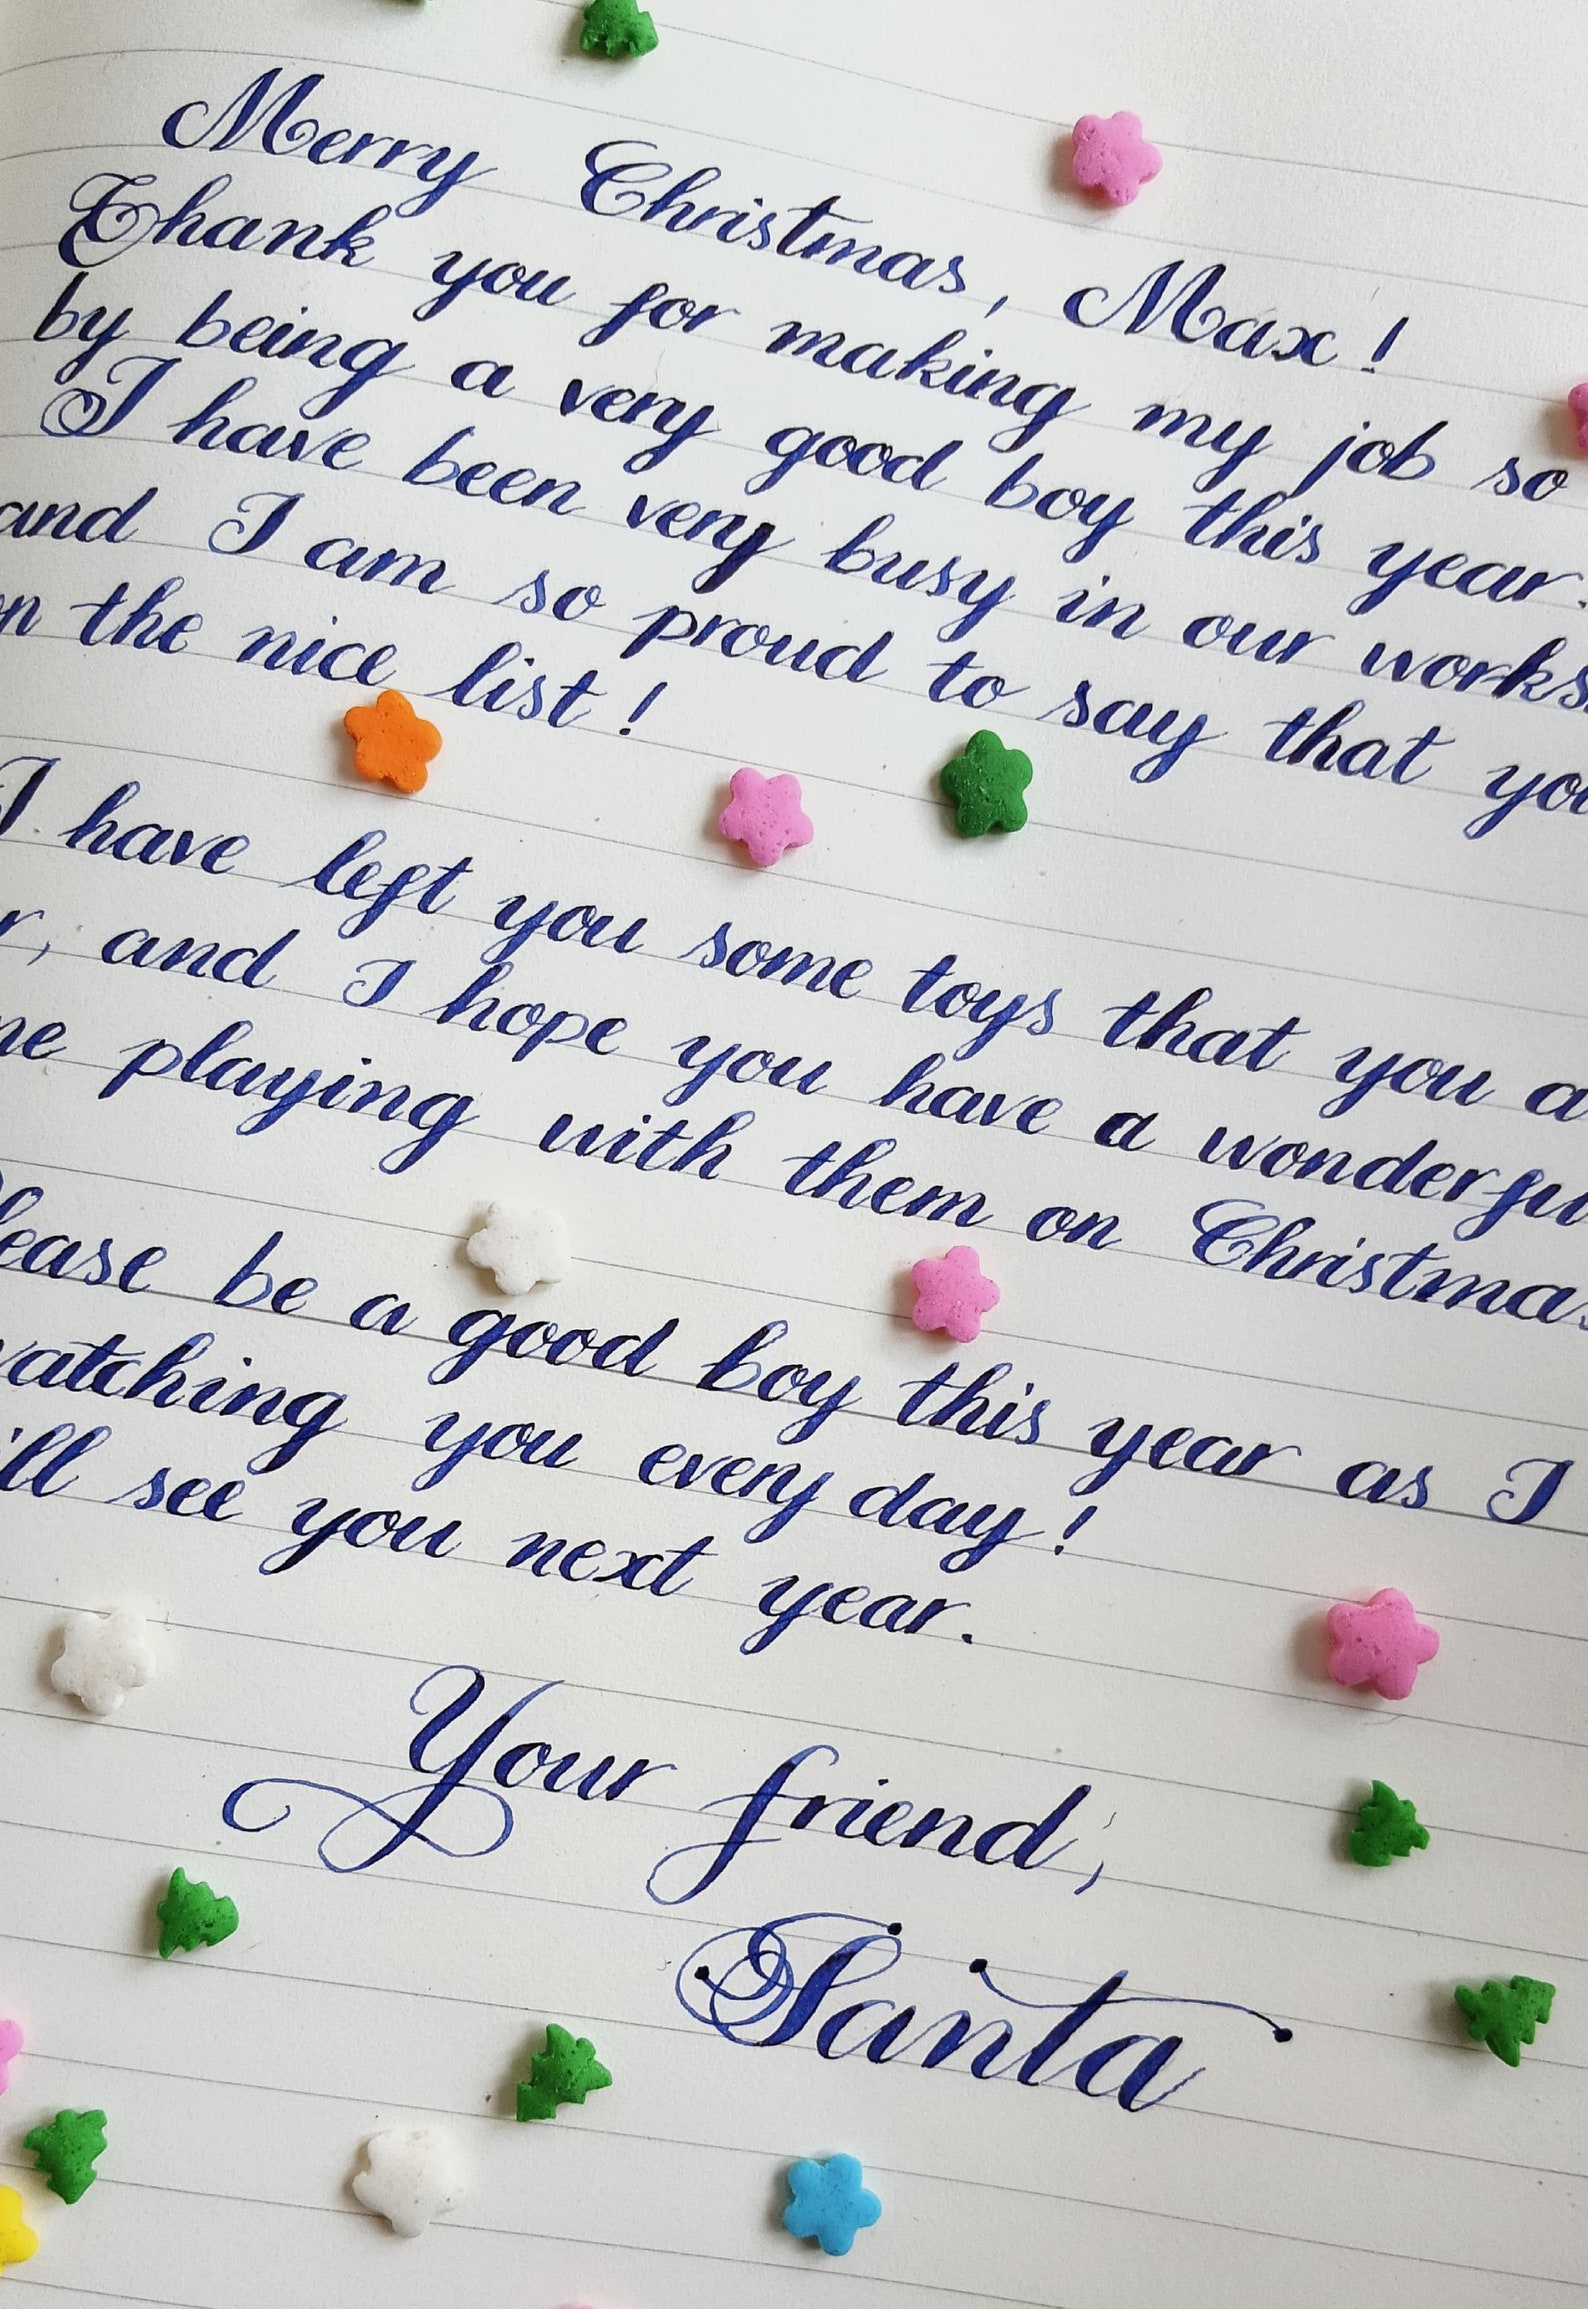 Merry Christmas, Max!
Thank you for making my job so
by being a very good boy this year.
I have been very busy in our works
and I am so proud to say that yo
the nice list!
I have left you some toys that you a
r, and I hope you have a wonderfu
ne playing with them on Christmas
lease be a good boy this year as I
atching you every day!
ill see you next year.
Your friend,
Santa